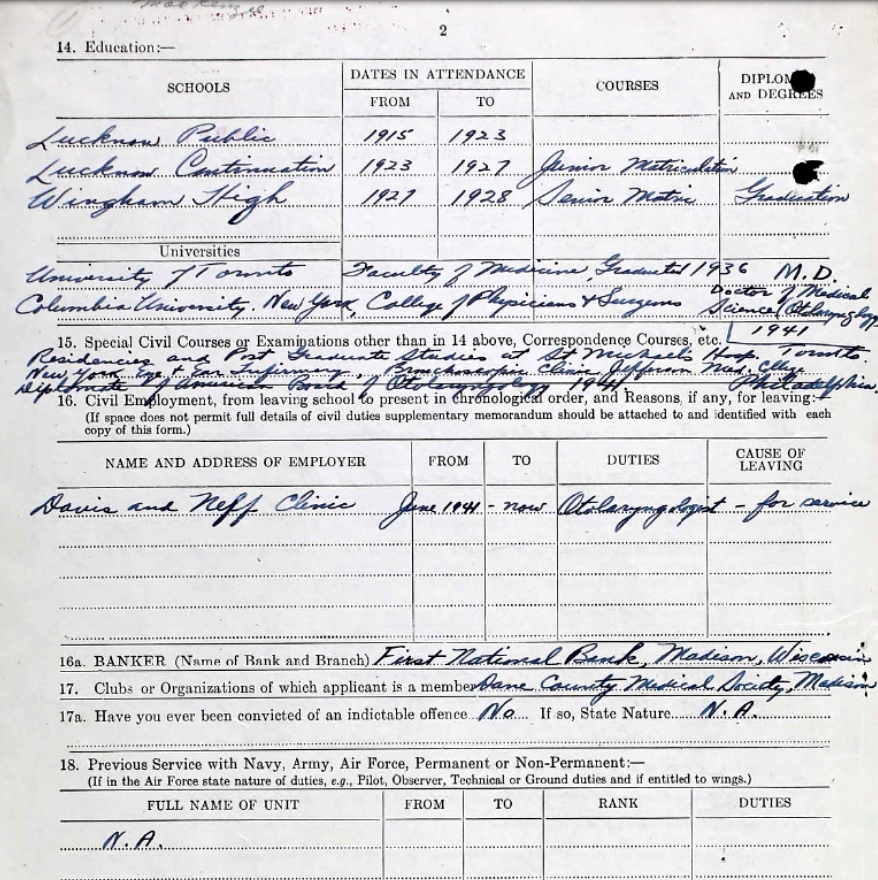 2
14. Education:—
SCHOOLS DATES IN ATTENDANCE COURSES DIPLOMAS AND DEGREES
FROM TO
Lucknow Public 1915 1923
Lucknow Continuation 1923 1927 Junior Matriculation
Wingham High 1927 1928 Senior Matric Graduation
Universities
University of Toronto Faculty of Medicine, Graduated 1936 M.D.
Columbia University. New York, College of Physicians & Surgeons Doctor of Medical Science (Otolaryngology) 1941
15. Special Civil Courses or Examinations other than in 14 above, Correspondence Courses, etc.
Residencies and Post Graduate Studies at St Michaels Hosp. Toronto.
New York Eye & Ear Infirmary, Bronchoscopic Clinic Jefferson Med. College Philadelphia.
Diplomate of American Board of Otolaryngology 1941
16. Civil Employment, from leaving school to present in chronological order, and Reasons, if any, for leaving:—
(If space does not permit full details of civil duties supplementary memorandum should be attached to and identified with each
copy of this form.)
NAME AND ADDRESS OF EMPLOYER FROM TO DUTIES CAUSE OF LEAVING
Davis and Neff Clinic June 1941 - now Otolaryngologist - for service
16a. BANKER (Name of Bank and Branch) First National Bank, Madison, Wisconsin
17. Clubs or Organizations of which applicant is a member Dane County Medical Society, Madison
17a. Have you ever been convicted of an indictable offence No If so, State Nature N.A.
18. Previous Service with Navy, Army, Air Force, Permanent or Non-Permanent:—
(If in the Air Force state nature of duties, e.g., Pilot, Observer, Technical or Ground duties and if entitled to wings.)
FULL NAME OF UNIT FROM TO RANK DUTIES
N.A.